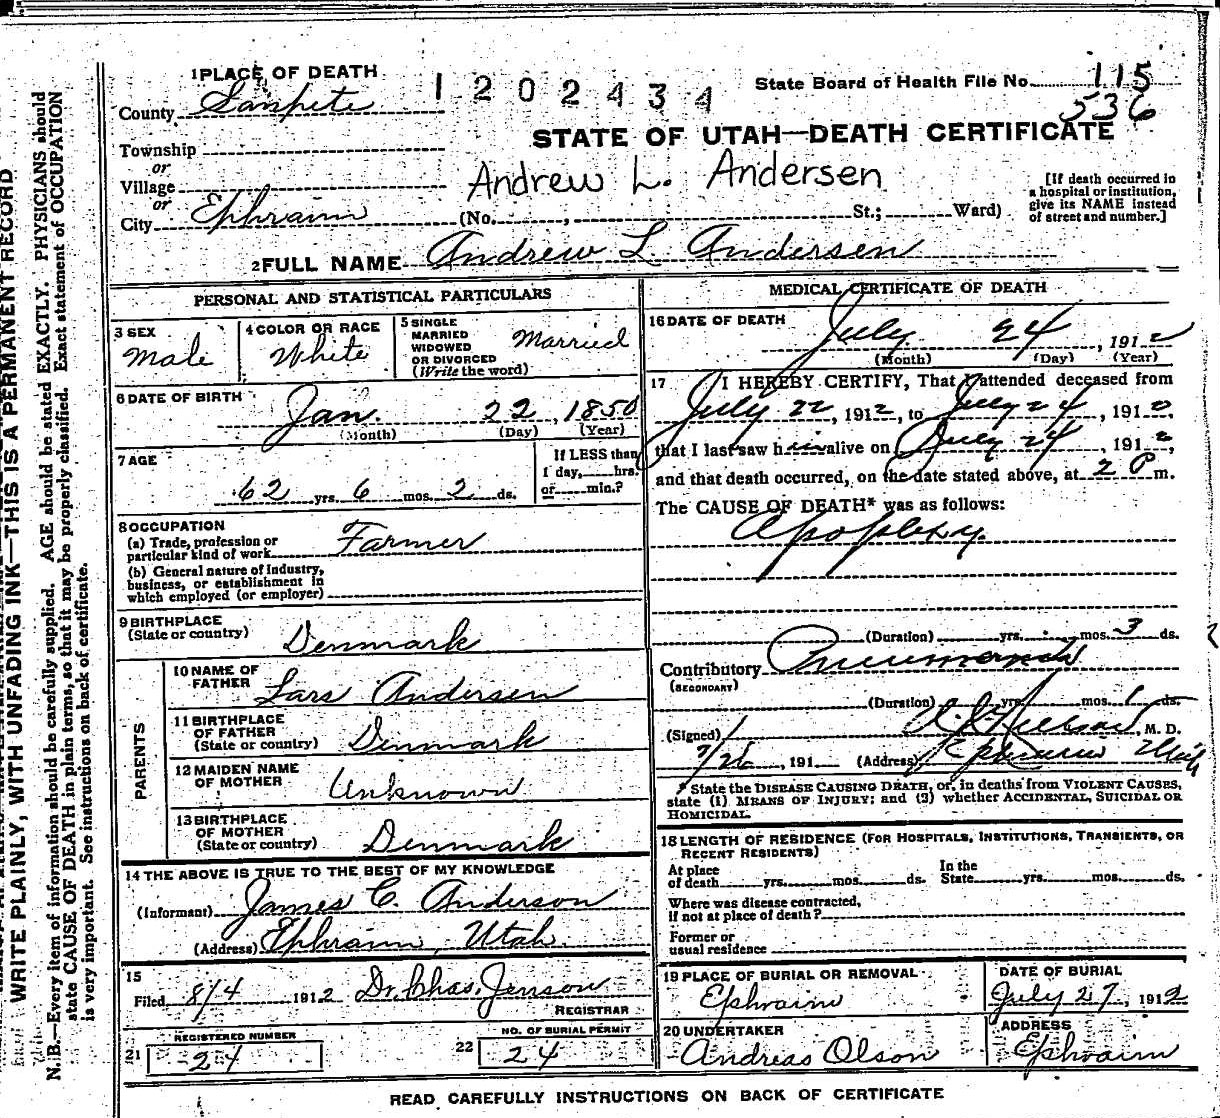 1 PLACE OF DEATH
1 2 0 2 4 3 4
State Board of Health File No. 115
536
County Sanpete
STATE OF UTAH—DEATH CERTIFICATE
Township
or
Village
or
City Ephraim
Andrew L. Andersen
(No. , St.; Ward)
[If death occurred in a hospital or institution, give its NAME instead of street and number.]
2 FULL NAME Andrew L Andersen
PERSONAL AND STATISTICAL PARTICULARS
3 SEX
Male
4 COLOR OR RACE
White
5 SINGLE
MARRIED
WIDOWED
OR DIVORCED
(Write the word)
Married
6 DATE OF BIRTH
Jan. 22, 1850
(Month) (Day) (Year)
7 AGE
62 yrs. 6 mos. 2 ds.
If LESS than
1 day, hrs.
or min.?
8 OCCUPATION
(a) Trade, profession or
particular kind of work Farmer
(b) General nature of industry,
business, or establishment in
which employed (or employer)
9 BIRTHPLACE
(State or country) Denmark
PARENTS
10 NAME OF
FATHER Lars Andersen
11 BIRTHPLACE
OF FATHER
(State or country) Denmark
12 MAIDEN NAME
OF MOTHER Unknown
13 BIRTHPLACE
OF MOTHER
(State or country) Denmark
14 THE ABOVE IS TRUE TO THE BEST OF MY KNOWLEDGE
(Informant) James C. Anderson
(Address) Ephraim, Utah.
15
Filed 8/4 1912 Dr. Chas. Jenson
REGISTRAR
REGISTERED NUMBER
21 24
NO. OF BURIAL PERMIT
22 24
MEDICAL CERTIFICATE OF DEATH
16 DATE OF DEATH
July 24, 1912
(Month) (Day) (Year)
17 I HEREBY CERTIFY, That I attended deceased from
July 22, 1912, to July 24, 1912,
that I last saw him alive on July 24, 1912,
and that death occurred, on the date stated above, at 2 P m.
The CAUSE OF DEATH* was as follows:
Apoplexy.
(Duration) yrs. mos. 3 ds.
Contributory Pneumonia
(SECONDARY)
(Duration) yrs. mos. 1 ds.
(Signed) M. D.
7/26, 191 (Address) Ephraim Utah
* State the DISEASE CAUSING DEATH, or, in deaths from VIOLENT CAUSES,
state (1) MEANS OF INJURY; and (2) whether ACCIDENTAL, SUICIDAL OR
HOMICIDAL.
18 LENGTH OF RESIDENCE (FOR HOSPITALS, INSTITUTIONS, TRANSIENTS, OR
RECENT RESIDENTS)
At place
of death yrs. mos. ds.
In the
State yrs. mos. ds.
Where was disease contracted,
if not at place of death?
Former or
usual residence
19 PLACE OF BURIAL OR REMOVAL
Ephraim
DATE OF BURIAL
July 27, 1912
20 UNDERTAKER
Andreas Olson
ADDRESS
Ephraim
READ CAREFULLY INSTRUCTIONS ON BACK OF CERTIFICATE
WRITE PLAINLY, WITH UNFADING INK—THIS IS A PERMANENT RECORD
N. B.—Every item of information should be carefully supplied. AGE should be stated EXACTLY. PHYSICIANS should
state CAUSE OF DEATH in plain terms, so that it may be properly classified. Exact statement of OCCUPATION
is very important. See instructions on back of certificate.